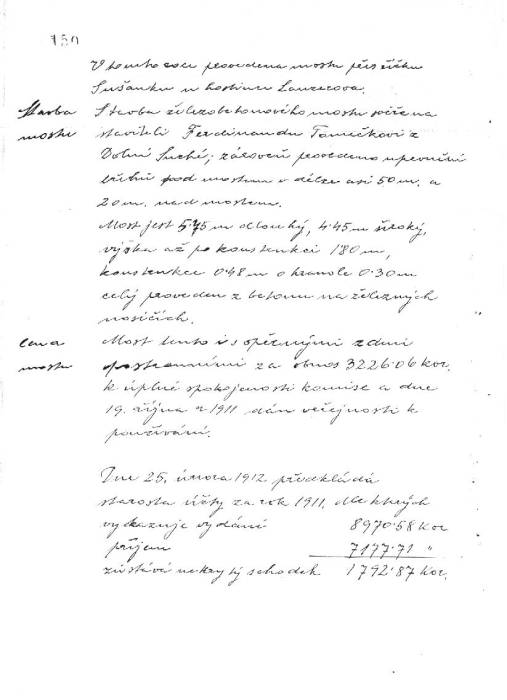 150
V tomto roce provedena mostu přes říčku
Sušanku u hostince
Stavba Stavba železobetonového mostu svěřena
mostu staviteli Ferdinandu Tomečkovi z
Dolní Suché; zároveň provedeno upevnění
břehů pod mostem v délce asi 50 m. a
20 m. nad mostem.
Most jest 5·75 m dlouhý, 4·45 m široký,
výška až po konstrukci 1·80 m,
konstrukce 0·48 m o hranole 0·30 m
celý proveden z betonu na železných
nosičích.
cena Most tento i s opěrnými zdmi
mostu postranními za obnos 3226·06 kor.
k úplné spokojenosti komise a dne
19. října r 1911 dán veřejnosti k
používání.
Dne 25. února 1912 předkládá
starosta účty za rok 1911, dle kterých
vykazuje vydání 8970·58 Kor
příjem 7177·71 "
zůstává nekrytý schodek 1792·87 Kor.